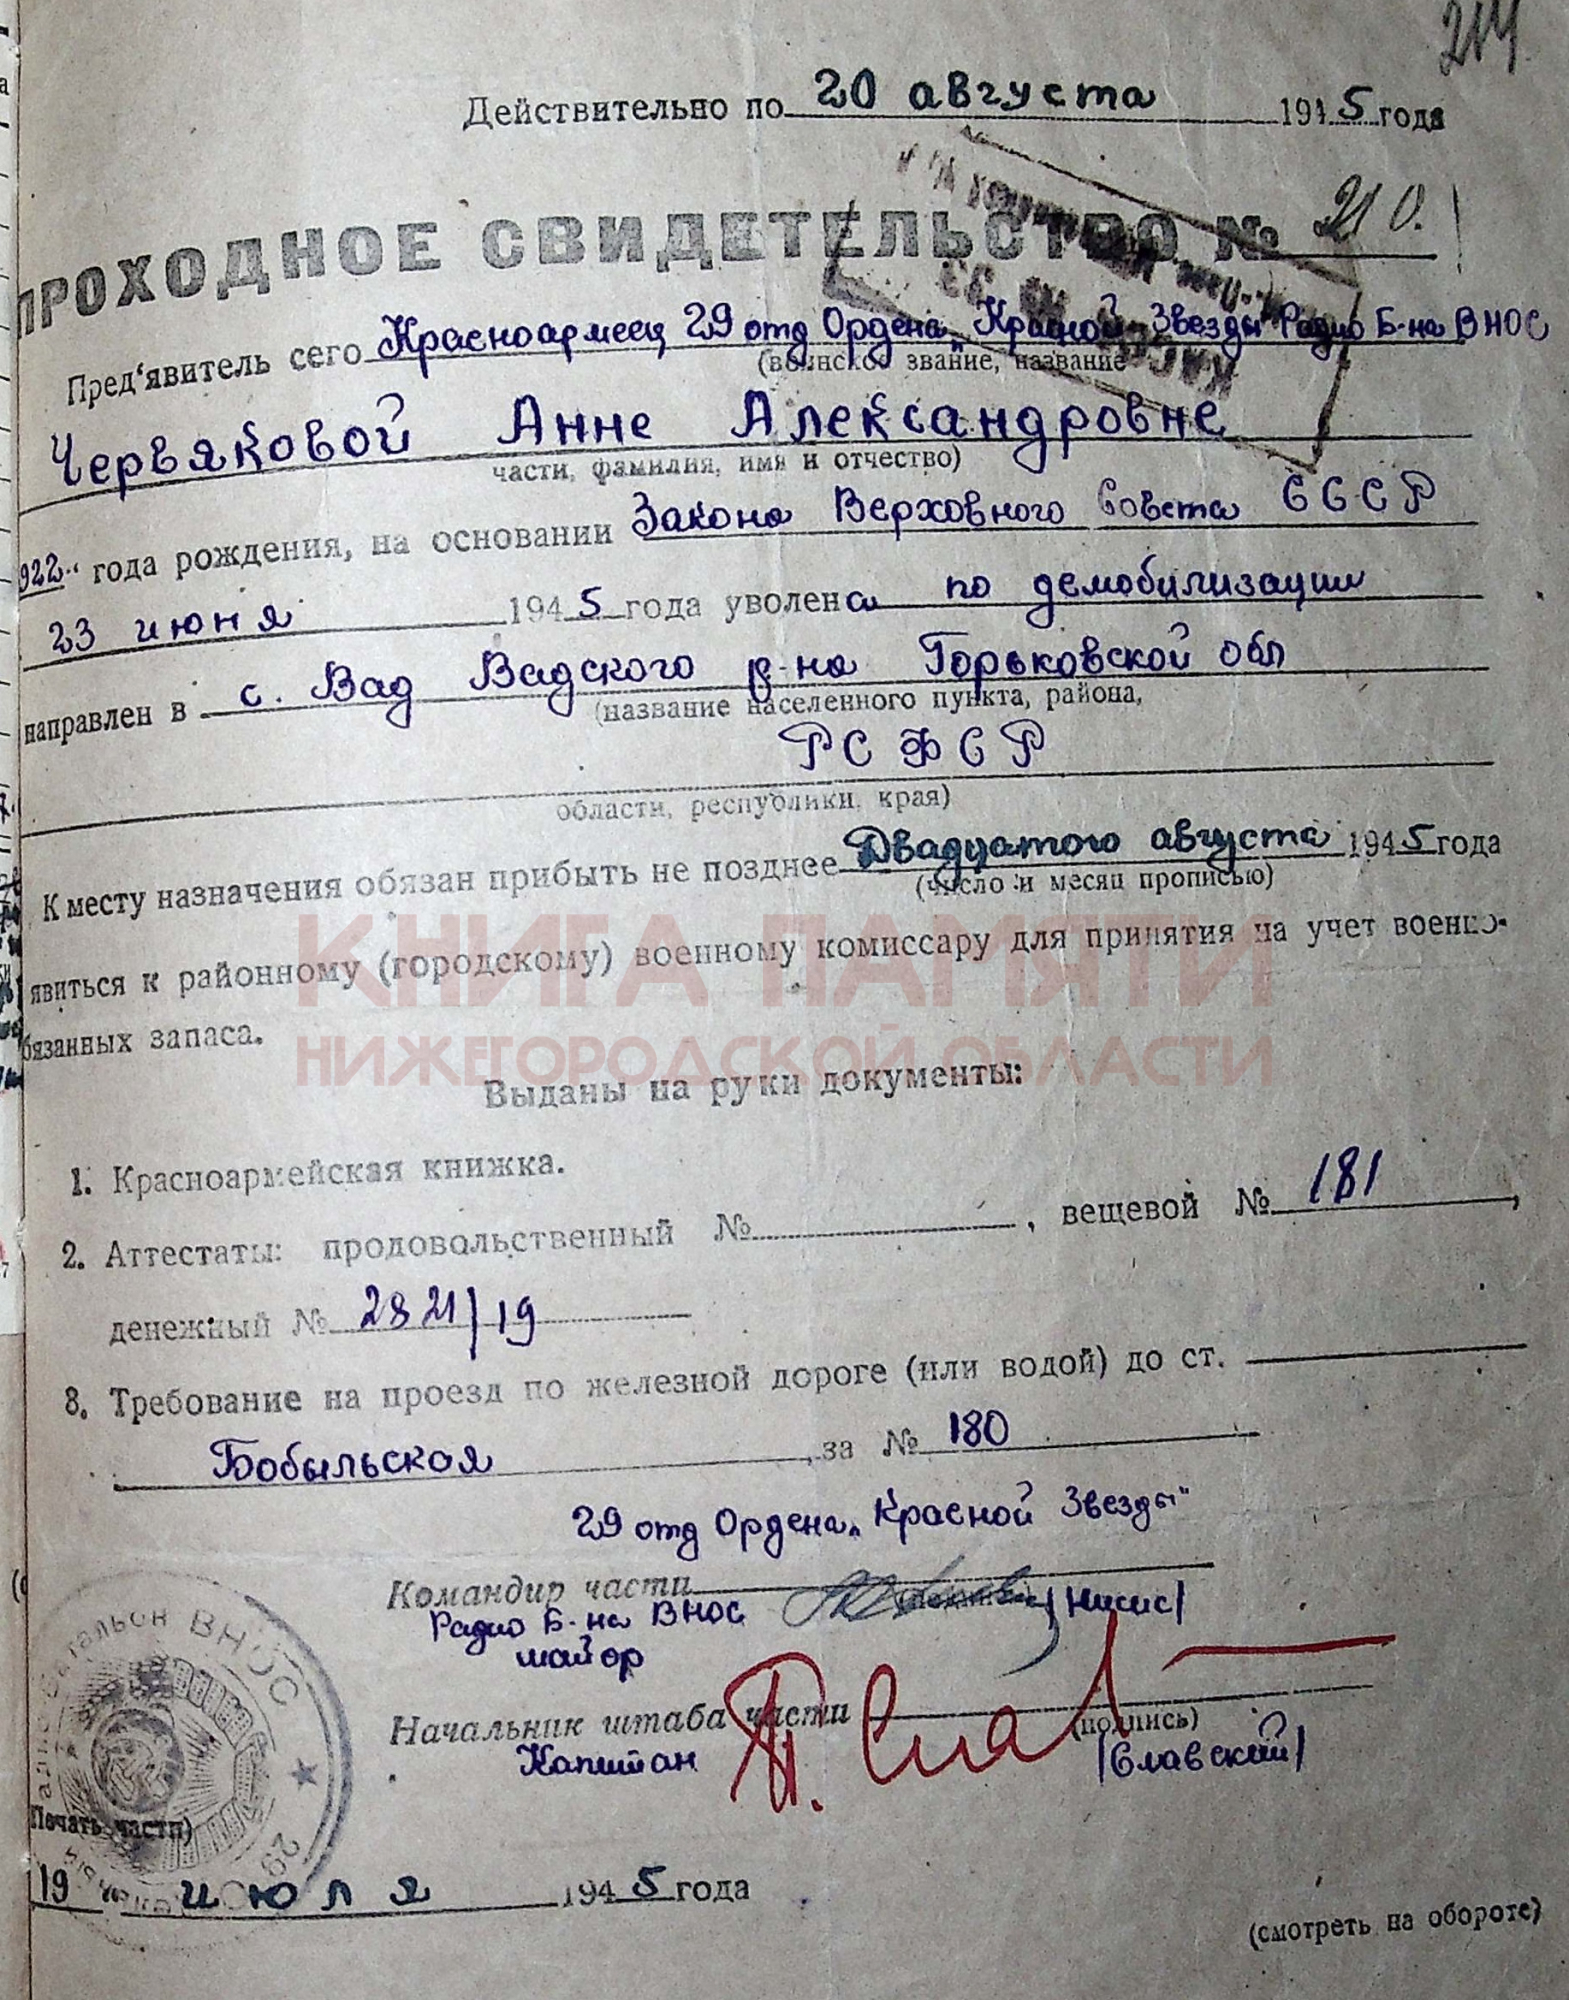 214
Действительно по 20 августа 1945 года
ПРОХОДНОЕ СВИДЕТЕЛЬСТВО № 210.
Пред'явитель сего Красноармеец 29 отд Ордена „Красной Звезды" Радио Б-на ВНОС
(воинское звание, название
Червяковой Анне Александровне
части, фамилия, имя и отчество)
922 года рождения, на основании Закона Верховного Совета СССР
23 июня 1945 года уволена по демобилизации
направлен в с. Вад Вадского р-на Горьковской обл
(название населенного пункта, района,
РСФСР
области, республики, края)
К месту назначения обязан прибыть не позднее Двадцатого августа 1945 года
(число и месяц прописью)
явиться к районному (городскому) военному комиссару для принятия на учет военно-
бязанных запаса.
КНИГА ПАМЯТИ
НИЖЕГОРОДСКОЙ ОБЛАСТИ
Выданы на руки документы:
1. Красноармейская книжка.
2. Аттестаты: продовольственный № , вещевой № 181,
денежный № 2821/19
8. Требование на проезд по железной дороге (или водой) до ст.
Бобыльская за № 180
29 отд Ордена „Красной Звезды"
Командир части
Радио Б-на ВНОС
майор
Начальник штаба части
(подпись)
Капитан /Славский/
батальон ВНОС
29
Печать части)
19 июля 1945 года
(смотреть на обороте)